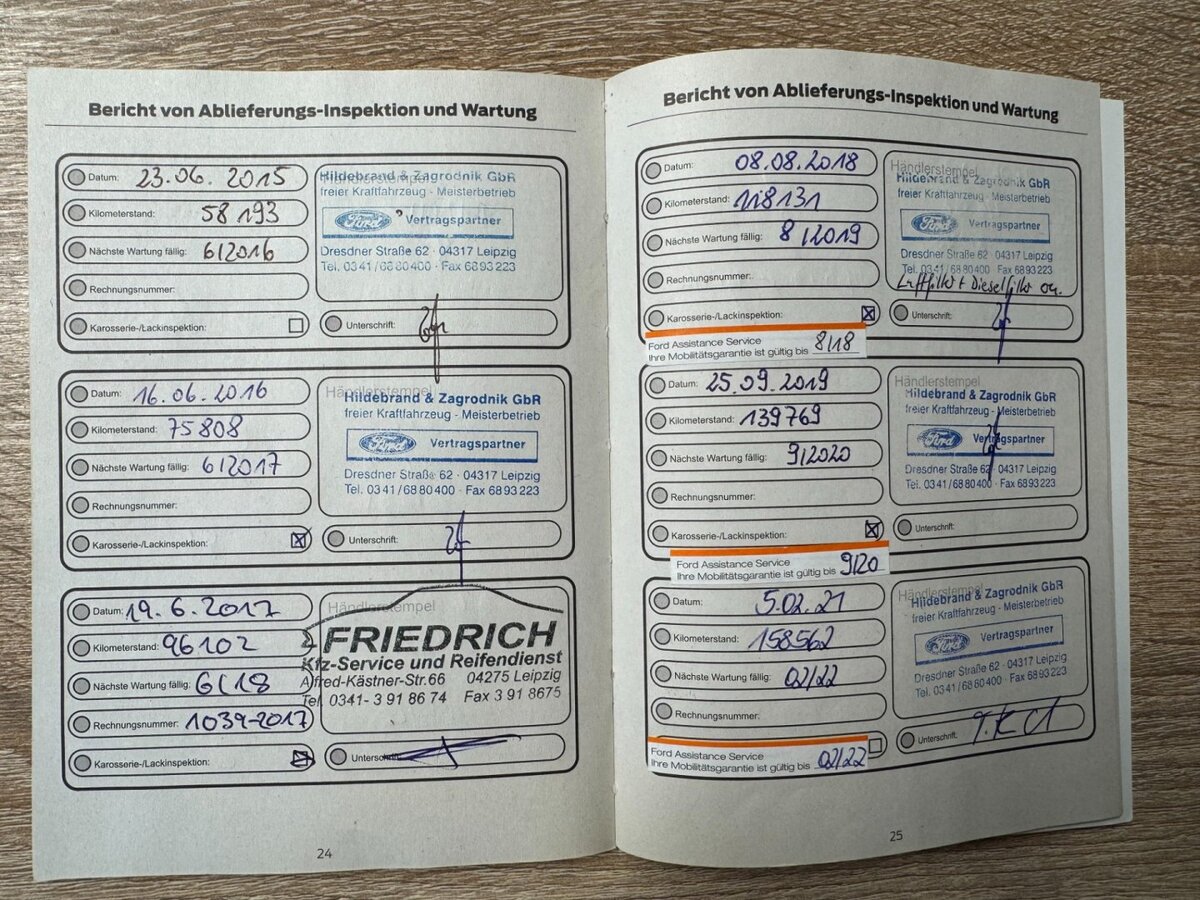 Bericht von Ablieferungs-Inspektion und Wartung
Datum: 23.06 2015
Kilometerstand: 58 193
Nächste Wartung fällig: 6/2016
Rechnungsnummer:
Karosserie-/Lackinspektion:
Händlerstempel
Hildebrand & Zagrodnik GbR
freier Kraftfahrzeug - Meisterbetrieb
Ford Vertragspartner
Dresdner Straße 62 · 04317 Leipzig
Tel. 0341/6880400 · Fax 6893223
Unterschrift:
Datum: 16.06.2016
Kilometerstand: 75808
Nächste Wartung fällig: 6/2017
Rechnungsnummer:
Karosserie-/Lackinspektion:
Händlerstempel
Hildebrand & Zagrodnik GbR
freier Kraftfahrzeug - Meisterbetrieb
Ford Vertragspartner
Dresdner Straße 62 · 04317 Leipzig
Tel. 0341/6880400 · Fax 6893223
Unterschrift:
Datum: 19.6.2017
Kilometerstand: 96102
Nächste Wartung fällig: 6/18
Rechnungsnummer: 1039-2017
Karosserie-/Lackinspektion:
Händlerstempel
FRIEDRICH
Kfz-Service und Reifendienst
Alfred-Kästner-Str.66 04275 Leipzig
Tel. 0341- 3 91 86 74 Fax 3 91 8675
Unterschrift:
24
Bericht von Ablieferungs-Inspektion und Wartung
Datum: 08.08.2018
Kilometerstand: 118131
Nächste Wartung fällig: 8/2019
Rechnungsnummer:
Karosserie-/Lackinspektion:
Händlerstempel
Hildebrand & Zagrodnik GbR
freier Kraftfahrzeug - Meisterbetrieb
Ford Vertragspartner
Dresdner Straße 62 · 04317 Leipzig
Tel. 0341/6880400 · Fax 6893223
Luftfilter + Dieselfilter
Unterschrift:
Ford Assistance Service
Ihre Mobilitätsgarantie ist gültig bis 8/18
Datum: 25.09.2019
Kilometerstand: 139769
Nächste Wartung fällig: 9/2020
Rechnungsnummer:
Karosserie-/Lackinspektion:
Händlerstempel
Hildebrand & Zagrodnik GbR
freier Kraftfahrzeug - Meisterbetrieb
Ford Vertragspartner
Dresdner Straße 62 · 04317 Leipzig
Tel. 0341/6880400 · Fax 6893223
Unterschrift:
Ford Assistance Service
Ihre Mobilitätsgarantie ist gültig bis 9/20
Datum: 5.02.21
Kilometerstand: 158562
Nächste Wartung fällig: 02/22
Rechnungsnummer:
Händlerstempel
Hildebrand & Zagrodnik GbR
freier Kraftfahrzeug - Meisterbetrieb
Ford Vertragspartner
Dresdner Straße 62 · 04317 Leipzig
Tel. 0341/6880400 · Fax 6893223
Unterschrift:
Ford Assistance Service
Ihre Mobilitätsgarantie ist gültig bis 02/22
25